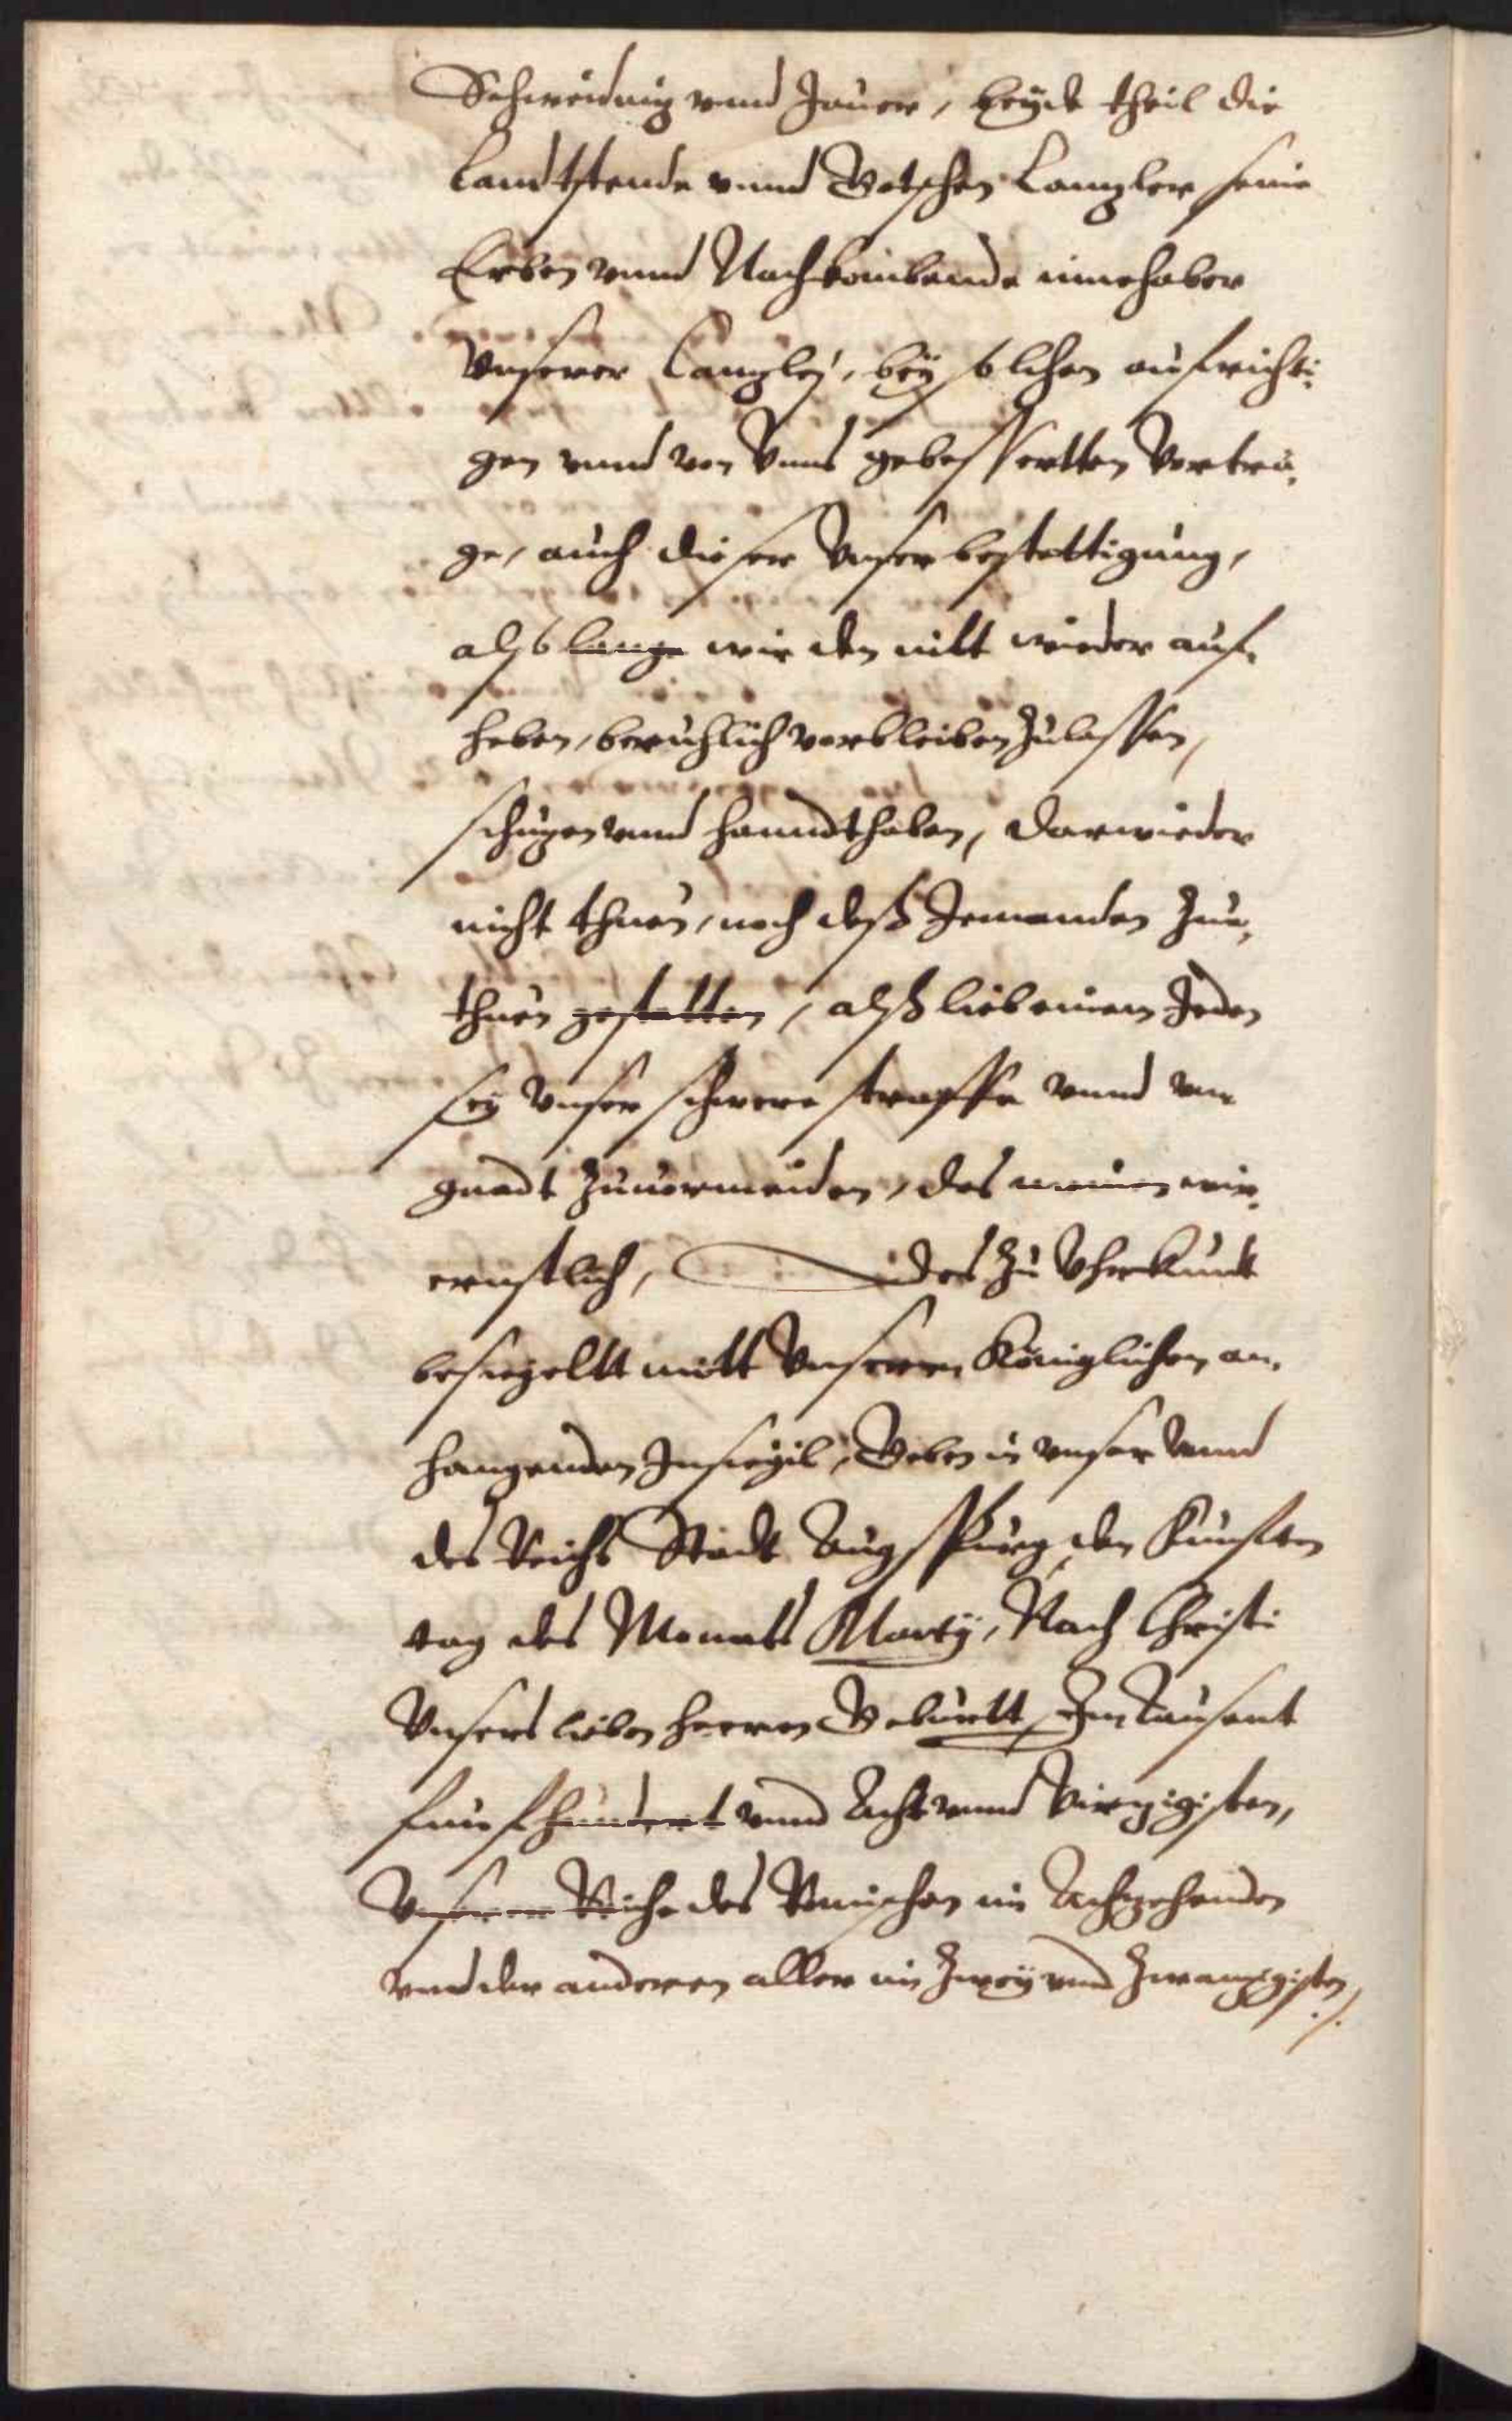 Schweidnitz vnnd Jauer, beyde theil die
Landtstende vnnd Gotschen Cantzler seine
Erben vnnd Nachkombende innehaber
Vnserer Cantzley, bey solchen aufrichti⸗
gen vnnd von Vnns gebesserten Vertra⸗
ge, auch dieser Vnser bestettigung,
alßo lange wir den nitt wieder auf⸗
heben, beruhlich verbleiben Zulassen,
schützen vnnd hanndthaben, Darwieder
nicht thuen, noch deß Jemanden Zue⸗
thuen gestatten, alß lieb einem Jeden
sey Vnser schwere straffe vnnd vn⸗
gnadt Zuuormeiden, das meinen wir⸗
ernstlich, Des Zu Vhrkundt
besiegeltt mitt Vnserem Königlichen an⸗
hangenden Insiegil, Geben in vnser vnnd
des Reichs Stadt Augsspurg den Funften
tag des Monats Marty, Nach Christi
Vnsers lieben herren Geburtt Im Tausent
funfhundert vnnd Acht vnnd Viertzigisten,
Vnserer Reiche des Römischen im Achtzehenden
vnd der anderen aller im Zwey vnd Zwantzigisten /.